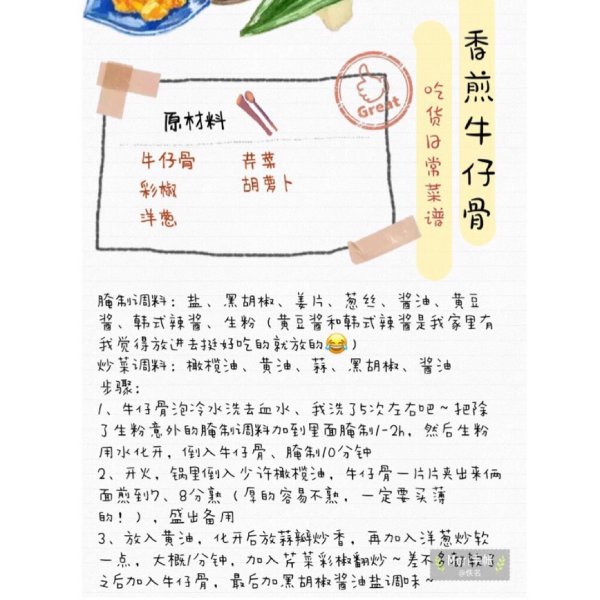 香煎牛仔骨
吃货日常菜谱
Great
原材料
牛仔骨 芹菜
彩椒 胡萝卜
洋葱
腌制调料：盐、黑胡椒、姜片、葱丝、酱油、黄豆
酱、韩式辣酱、生粉（黄豆酱和韩式辣酱是我家里有
我觉得放进去挺好吃的就放的😂）
炒菜调料：橄榄油、黄油、蒜、黑胡椒、酱油
步骤：
1、牛仔骨泡冷水洗去血水、我洗了5次左右吧～把除
了生粉意外的腌制调料加到里面腌制1-2h，然后生粉
用水化开，倒入牛仔骨、腌制10分钟
2、开火，锅里倒入少许橄榄油，牛仔骨一片片夹出来俩
面煎到7、8分熟（厚的容易不熟，一定要买薄
的！），盛出备用
3、放入黄油，化开后放蒜瓣炒香，再加入洋葱炒软
一点，大概1分钟，加入芹菜彩椒翻炒～差不多
之后加入牛仔骨，最后加黑胡椒酱油盐调味～